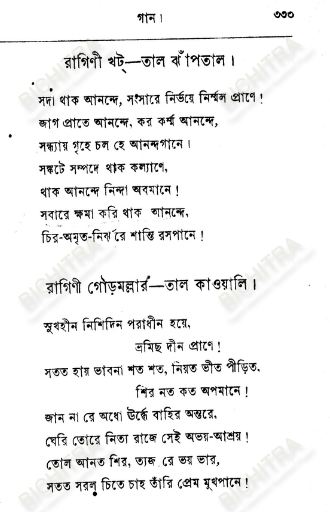 গান।
৩৩৩
রাগিণী খট্—তাল ঝাঁপতাল।
সদা থাক আনন্দে, সংসারে নির্ভয়ে নির্ম্মল প্রাণে!
জাগ প্রাতে আনন্দে, কর কর্ম্ম আনন্দে,
সন্ধ্যায় গৃহে চল হে আনন্দগানে।
সঙ্কটে সম্পদে থাক কল্যাণে,
থাক আনন্দে নিন্দা অবমানে!
সবারে ক্ষমা করি থাক আনন্দে,
চির-অমৃত-নির্ঝরে শান্তি রসপানে!
রাগিণী গৌড়মল্লার—তাল কাওয়ালি।
সুখহীন নিশিদিন পরাধীন হয়ে,
ভ্রমিছ দীন প্রাণে!
সতত হায় ভাবনা শত শত, নিয়ত ভীত পীড়িত,
শির নত কত অপমানে!
জান না রে অধো ঊর্দ্ধে বাহির অন্তরে,
ঘেরি তোরে নিত্য রাজে সেই অভয়-আশ্রয়!
তোল আনত শির, ত্যজ রে ভয় ভার,
সতত সরল চিতে চাহ তাঁরি প্রেম মুখপানে!
BICHITRA